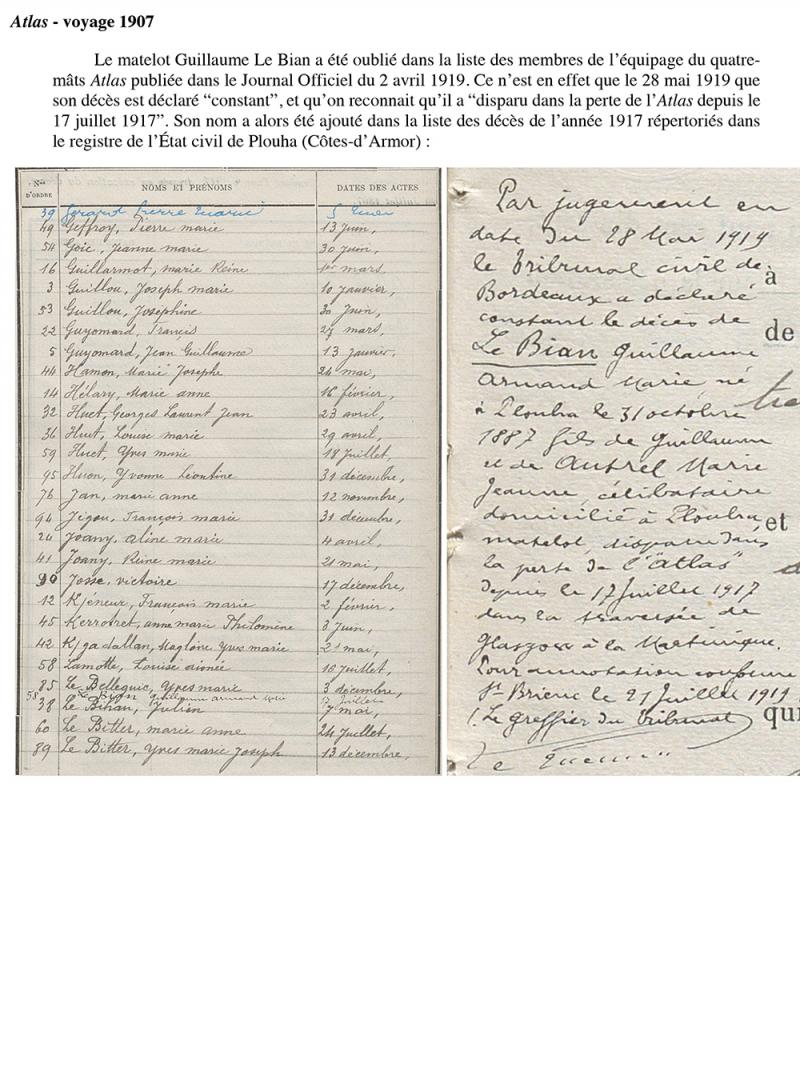 Atlas - voyage 1907
Le matelot Guillaume Le Bian a été oublié dans la liste des membres de l'équipage du quatre-
mâts Atlas publiée dans le Journal Officiel du 2 avril 1919. Ce n'est en effet que le 28 mai 1919 que
son décès est déclaré “constant”, et qu'on reconnait qu'il a “disparu dans la perte de l'Atlas depuis le
17 juillet 1917”. Son nom a alors été ajouté dans la liste des décès de l'année 1917 répertoriés dans
le registre de l'État civil de Plouha (Côtes-d'Armor) :
Nos D'ORDRE NOMS ET PRÉNOMS DATES DES ACTES
39 Gérard Pierre Marie 5
49 Geffroy, Pierre marie 13 Juin,
54 Goïc, Jeanne marie 30 Juin,
16 Guillarmot, marie Reine 1er mars
3 Guillou, Joseph marie 10 janvier,
53 Guillou, Joséphine 30 Juin,
22 Guyomard, Francis 27 mars,
5 Guyomard, Jean Guillaume 13 Janvier,
44 Hamon, Marie Josephe 24 mai,
14 Hélary, Marie anne 16 février,
32 Huet, Georges Laurent Jean 23 avril,
36 Huet, Louise marie 29 avril,
59 Huet, Yves marie 18 Juillet,
95 Huon, Yvonne Léontine 31 décembre,
76 Jan, marie anne 12 novembre,
94 Jégou, François marie 31 décembre,
24 Joany, aline marie 4 avril,
41 Joany, Reine marie 21 mai,
90 Josse, victoire 17 décembre,
12 K/éneur, François marie 2 février,
45 Kerrotret, anne marie Philomène 3 Juin,
42 K/gadallan, Magloire Yves marie 21 mai,
58 Lamotte, Louise aimée 18 Juillet,
85 Le Belleguic, Yves marie 3 décembre,
58 Le Bian Guillaume armand marie 17 Juillet
38 Le Bihan, Julien 7 mai,
60 Le Bitter, marie anne 24 Juillet,
89 Le Bitter, Yves marie Joseph 13 décembre,
Par jugement en
date du 28 Mai 1919
le Tribunal civil de
à
Bordeaux a déclaré
constant le décès de
de
Le Bian Guillaume
Armand Marie né
à Plouha le 31 octobre
1887 fils de Guillaume
et de Autret Marie
Jeanne célibataire
domicilié à Plouha
et
matelot, disparu dans
la perte de l'"Atlas"
depuis le 17 Juillet 1917
dans la traversée de
Glasgow à la Martinique.
Pour annotation conforme
St Brieuc le 21 Juillet 1919
(Le greffier du Tribunal)
qui